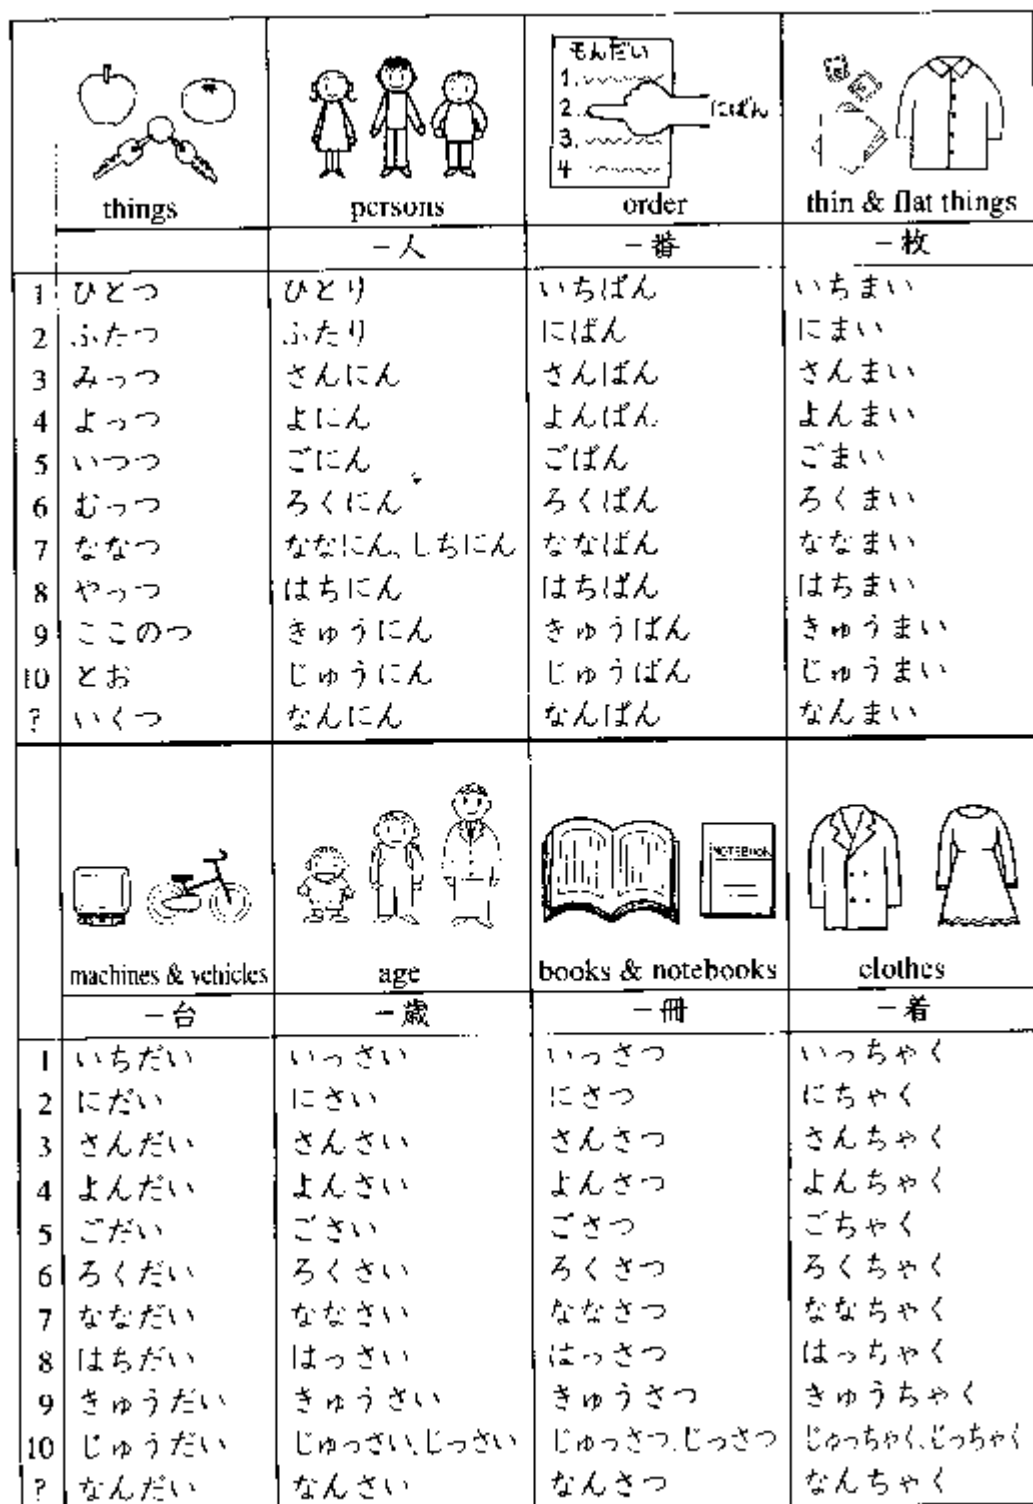 もんだい
1.
2.
3.
4
にばん
things persons order thin & flat things
－人 －番 －枚
1 ひとつ ひとり いちばん いちまい
2 ふたつ ふたり にばん にまい
3 みっつ さんにん さんばん さんまい
4 よっつ よにん よんばん よんまい
5 いつつ ごにん ごばん ごまい
6 むっつ ろくにん ろくばん ろくまい
7 ななつ ななにん、しちにん ななばん ななまい
8 やっつ はちにん はちばん はちまい
9 ここのつ きゅうにん きゅうばん きゅうまい
10 とお じゅうにん じゅうばん じゅうまい
? いくつ なんにん なんばん なんまい
NOTEBOOK
machines & vehicles age books & notebooks clothes
－台 －歳 －冊 －着
1 いちだい いっさい いっさつ いっちゃく
2 にだい にさい にさつ にちゃく
3 さんだい さんさい さんさつ さんちゃく
4 よんだい よんさい よんさつ よんちゃく
5 ごだい ごさい ごさつ ごちゃく
6 ろくだい ろくさい ろくさつ ろくちゃく
7 ななだい ななさい ななさつ ななちゃく
8 はちだい はっさい はっさつ はっちゃく
9 きゅうだい きゅうさい きゅうさつ きゅうちゃく
10 じゅうだい じゅっさい、じっさい じゅっさつ、じっさつ じゅっちゃく、じっちゃく
? なんだい なんさい なんさつ なんちゃく